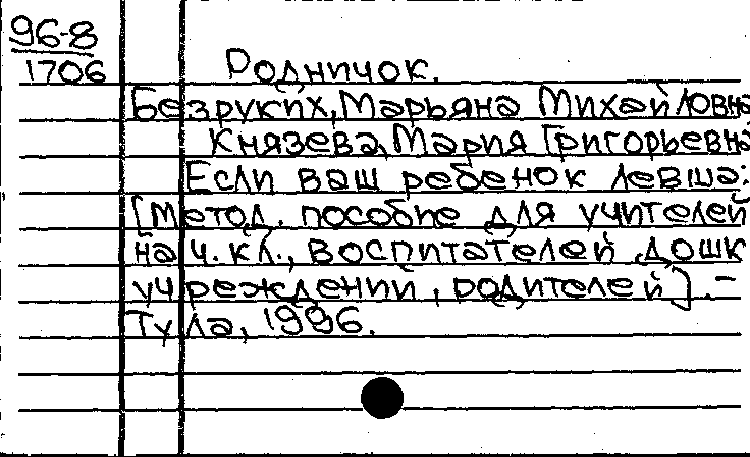 96-8
1706
Родничок.
Безруких, Марьяна Михайловна
Князева, Мария Григорьевна
Если ваш ребенок левша:
[Метод. пособие для учителей
нач. кл., воспитателей дошк
учреждений, родителей]. -
Тула, 1996.